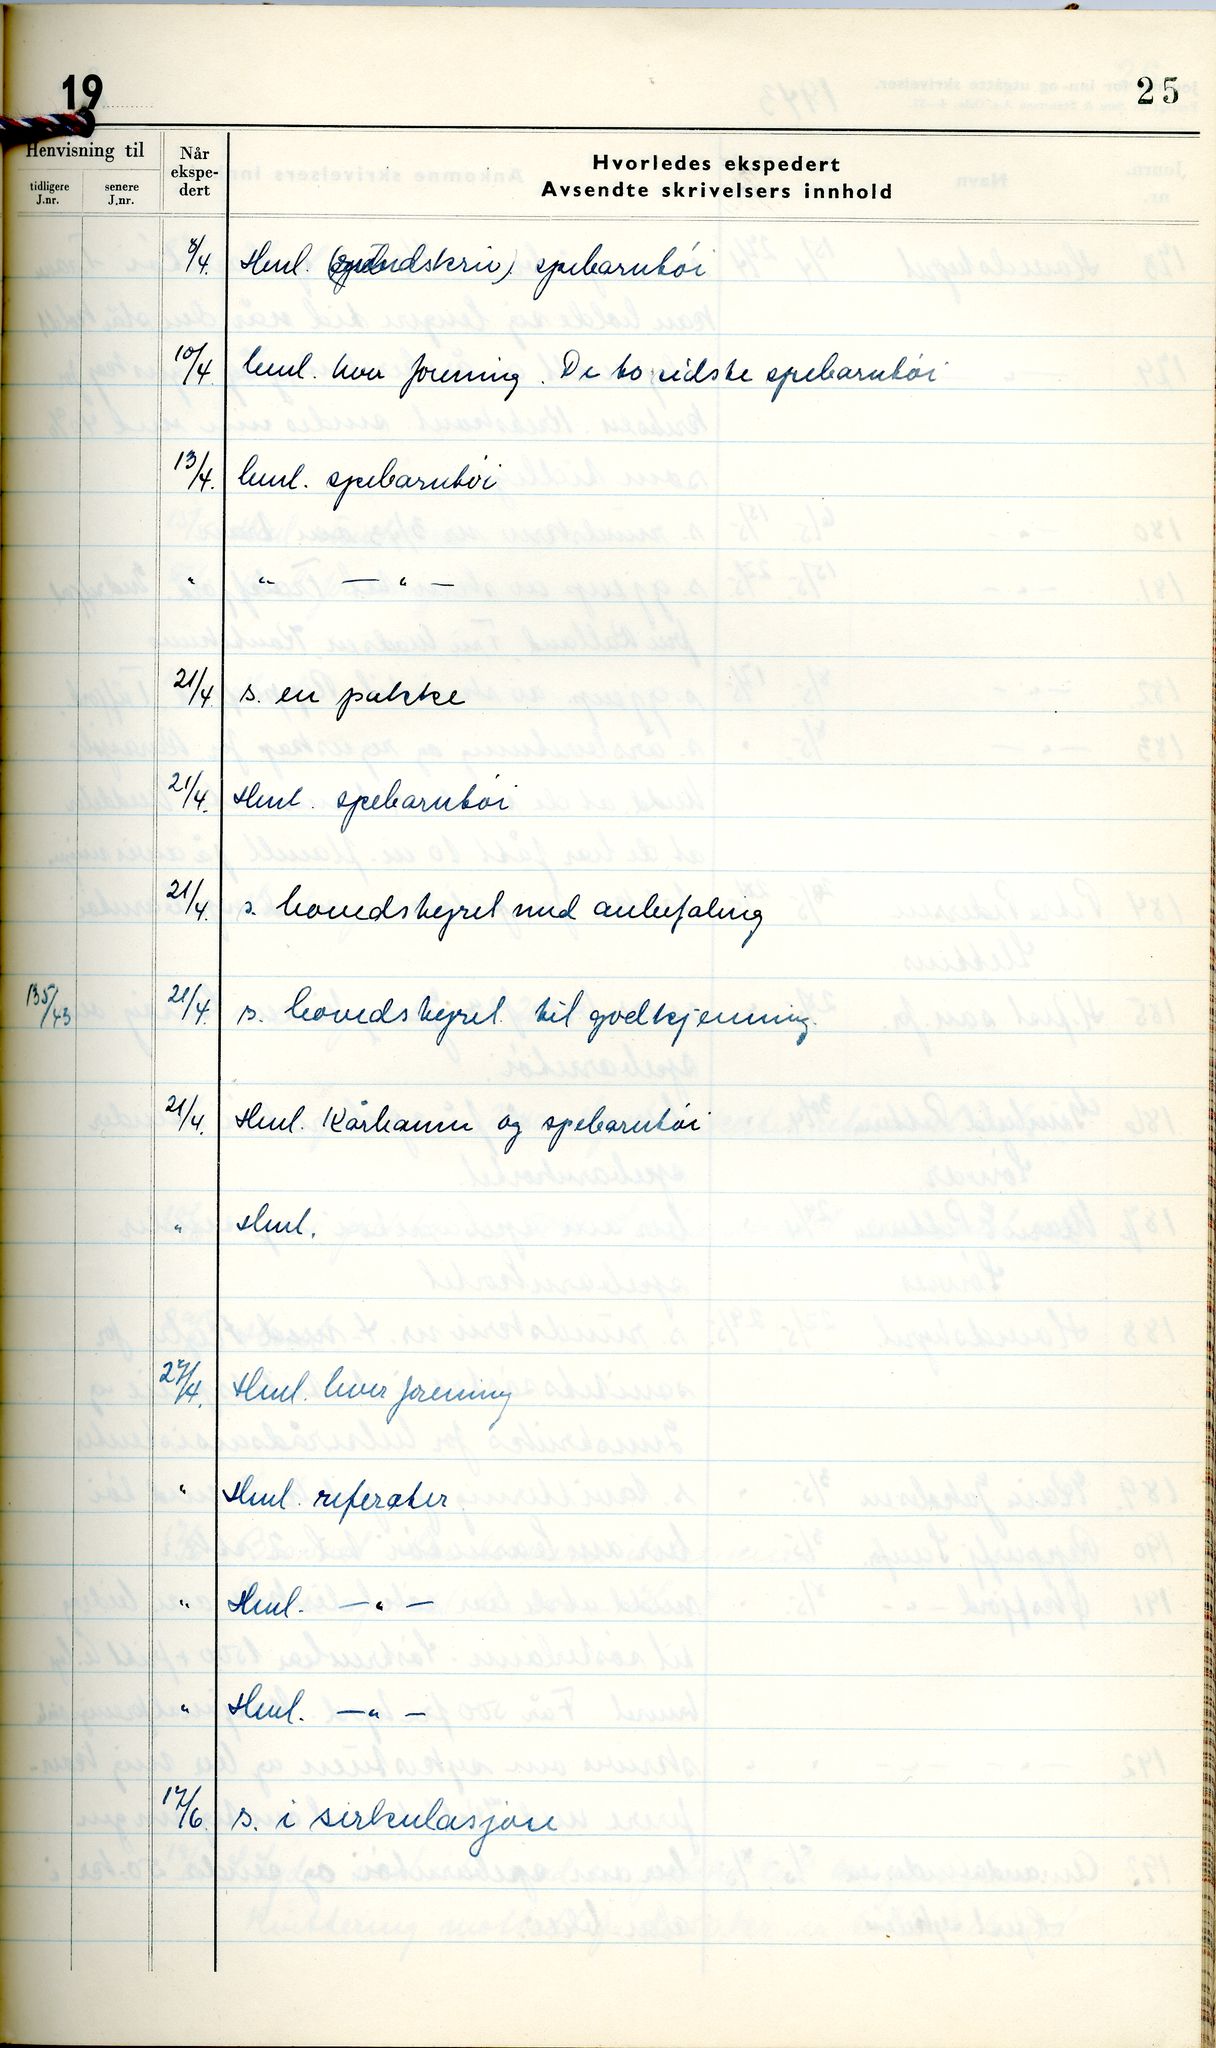 19
25
Henvisning til
tidligere J.nr.
senere J.nr.
Når ekspe-dert
Hvorledes ekspedert
Avsendte skrivelsers innhold
8/4. Hml. spebarntöi
10/4 hml. hver forening. De to sidste spebarntöi
13/4. hml. spebarntöi
" " — " —
21/4. s. en pakke
21/4. Hml. spebarntöi
21/4. s. hovedstyret med anbefaling
135/43 21/4. s. hovedstyret til godkjenning.
21/4. Hml. Kårhamn og spebarntöi
" Hml.
27/4. Hml. hver forening
" Hml. referater
" Hml. — " —
" Hml. — " —
17/6. s. i sirkulasjon